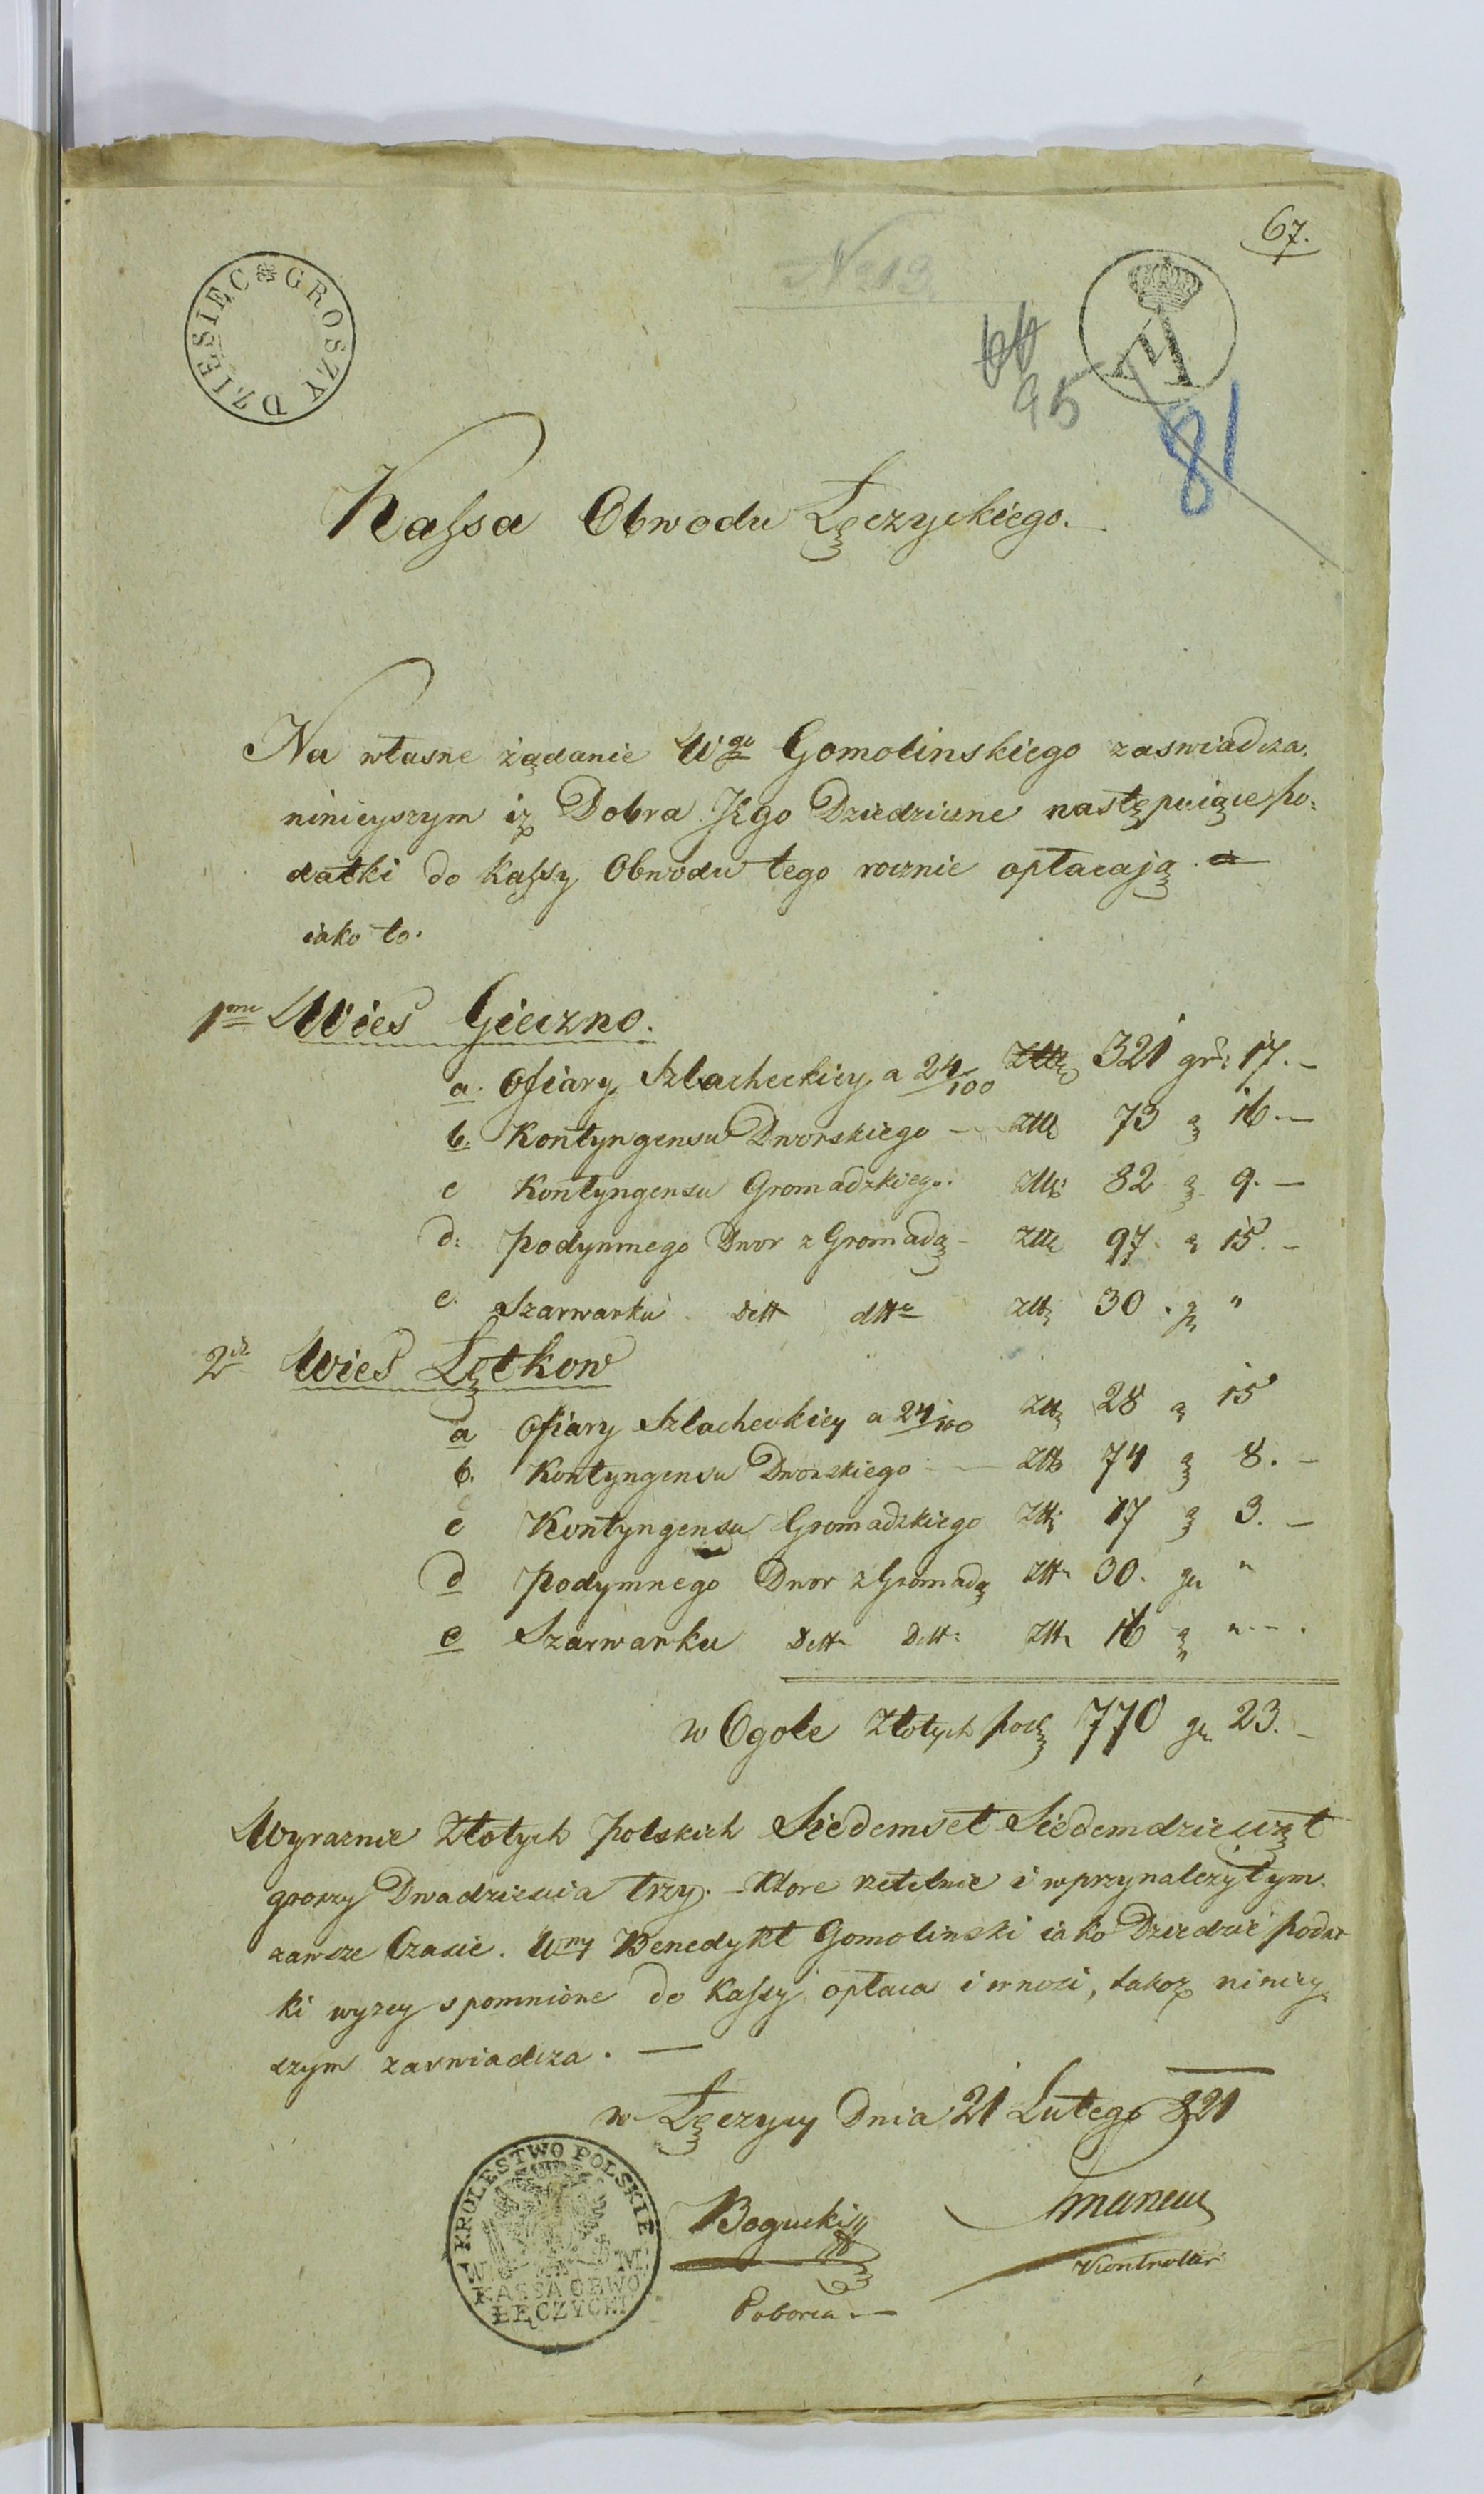 67.
DZIESIEC GROSZY
No 13
66
95
81
Kassa Obwodu Łęczyckiego.
Na własne żądanie Wgo Gomolinskiego zaswiadcza
ninieyszym iż Dobra Jego Dziedziczne następuiące po:
datki do Kassy Obwodu tego rocznie opłacają.
iako to.
1mo Wies Gieczno.
a. Ofiary Szlacheckiey a 24/100 Złł 321 gr: 17. –
b. Kontyngensu Dworskiego – złł 73 g 16. –
c Kontyngensu Gromadzkiego. złł 82 g 9. –
d: Podymnego Dwor z Gromadą – złł 97 g 15. –
e. Szarwarku dett dtto złł 30. g "
2do Wies Łętkow
a Ofiary Szlacheckiey a 24/100 złł 28 g 15
b. Kontyngensu Dworskiego – złł 74 g 8. –
c Kontyngensu Gromadzkiego złł 17 g 3. –
d Podymnego Dwor z Gromadą złł 30. gr "
e Szarwarku Dett Dett: złł 16 g "
w Ogole Złotych pols 770 gr 23. –
Wyraznie Złotych Polskich Siedemset Siedemdziesiąt
groszy Dwadziescia trzy. – Które rzetelnie i wprzynależytym
zawsze Czasie. Wmy Benedykt Gomolinski iako Dziedzic podat
ki wyzey spomnione do Kassy opłaca i wnosi, takoż niniey:
szym zaswiadcza. –
w Łęczycy Dnia 21 Lutego 821
KROLESTWO POLSKIE
W M
KASSA OBWO
ŁĘCZYCKI
Bogucki
Poborca. –
Kontroler